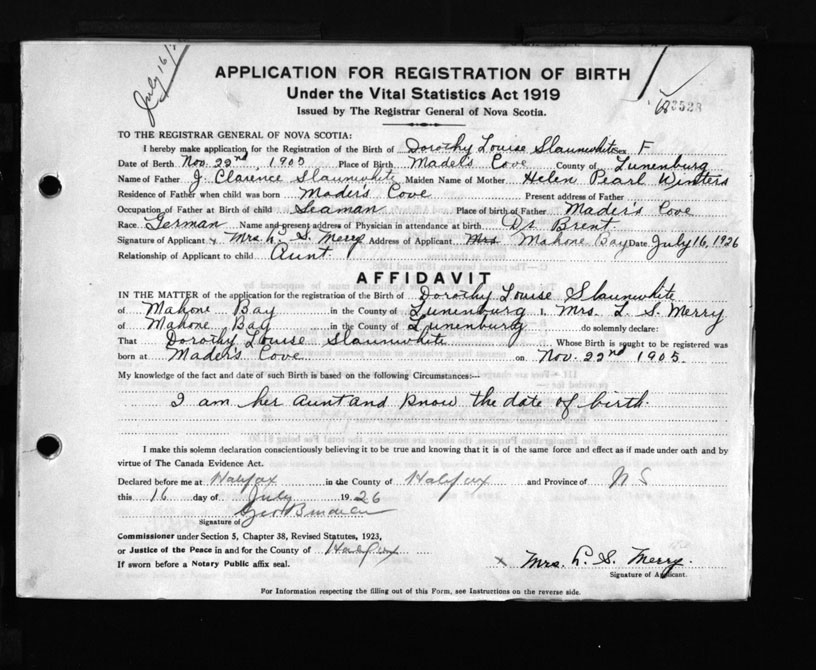 July 16/
APPLICATION FOR REGISTRATION OF BIRTH
Under the Vital Statistics Act 1919
Issued by The Registrar General of Nova Scotia.
TO THE REGISTRAR GENERAL OF NOVA SCOTIA:
I hereby make application for the Registration of the Birth of Dorothy Louise Slaunwhite Sex F
Date of Birth Nov. 22nd, 1905 Place of Birth Mader's Cove County of Lunenburg
Name of Father J. Clarence Slaunwhite Maiden Name of Mother Helen Pearl Winters
Residence of Father when child was born Mader's Cove Present address of Father
Occupation of Father at Birth of child Seaman Place of birth of Father Mader's Cove
Race German Name and present address of Physician in attendance at birth Dr Brent.
Signature of Applicant x Mrs. L. S. Merry Address of Applicant Mrs Mahone Bay Date July 16, 1926
Relationship of Applicant to child Aunt
AFFIDAVIT
IN THE MATTER of the application for the registration of the Birth of Dorothy Louise Slaunwhite
of Mahone Bay in the County of Lunenburg I, Mrs. L. S. Merry
of Mahone Bay in the County of Lunenburg do solemnly declare:
That Dorothy Louise Slaunwhite Whose Birth is sought to be registered was
born at Mader's Cove on Nov. 22nd 1905.
My knowledge of the fact and date of such Birth is based on the following Circumstances:—
I am her Aunt and know the date of birth.
I make this solemn declaration conscientiously believing it to be true and knowing that it is of the same force and effect as if made under oath and by
virtue of The Canada Evidence Act.
Declared before me at Halifax in the County of Halifax and Province of N S
this 16 day of July 1926
Signature of
Commissioner under Section 5, Chapter 38, Revised Statutes, 1923,
or Justice of the Peace in and for the County of Halifax
If sworn before a Notary Public affix seal.
x Mrs. L. S. Merry.
Signature of Applicant.
For Information respecting the filling out of this Form, see Instructions on the reverse side.